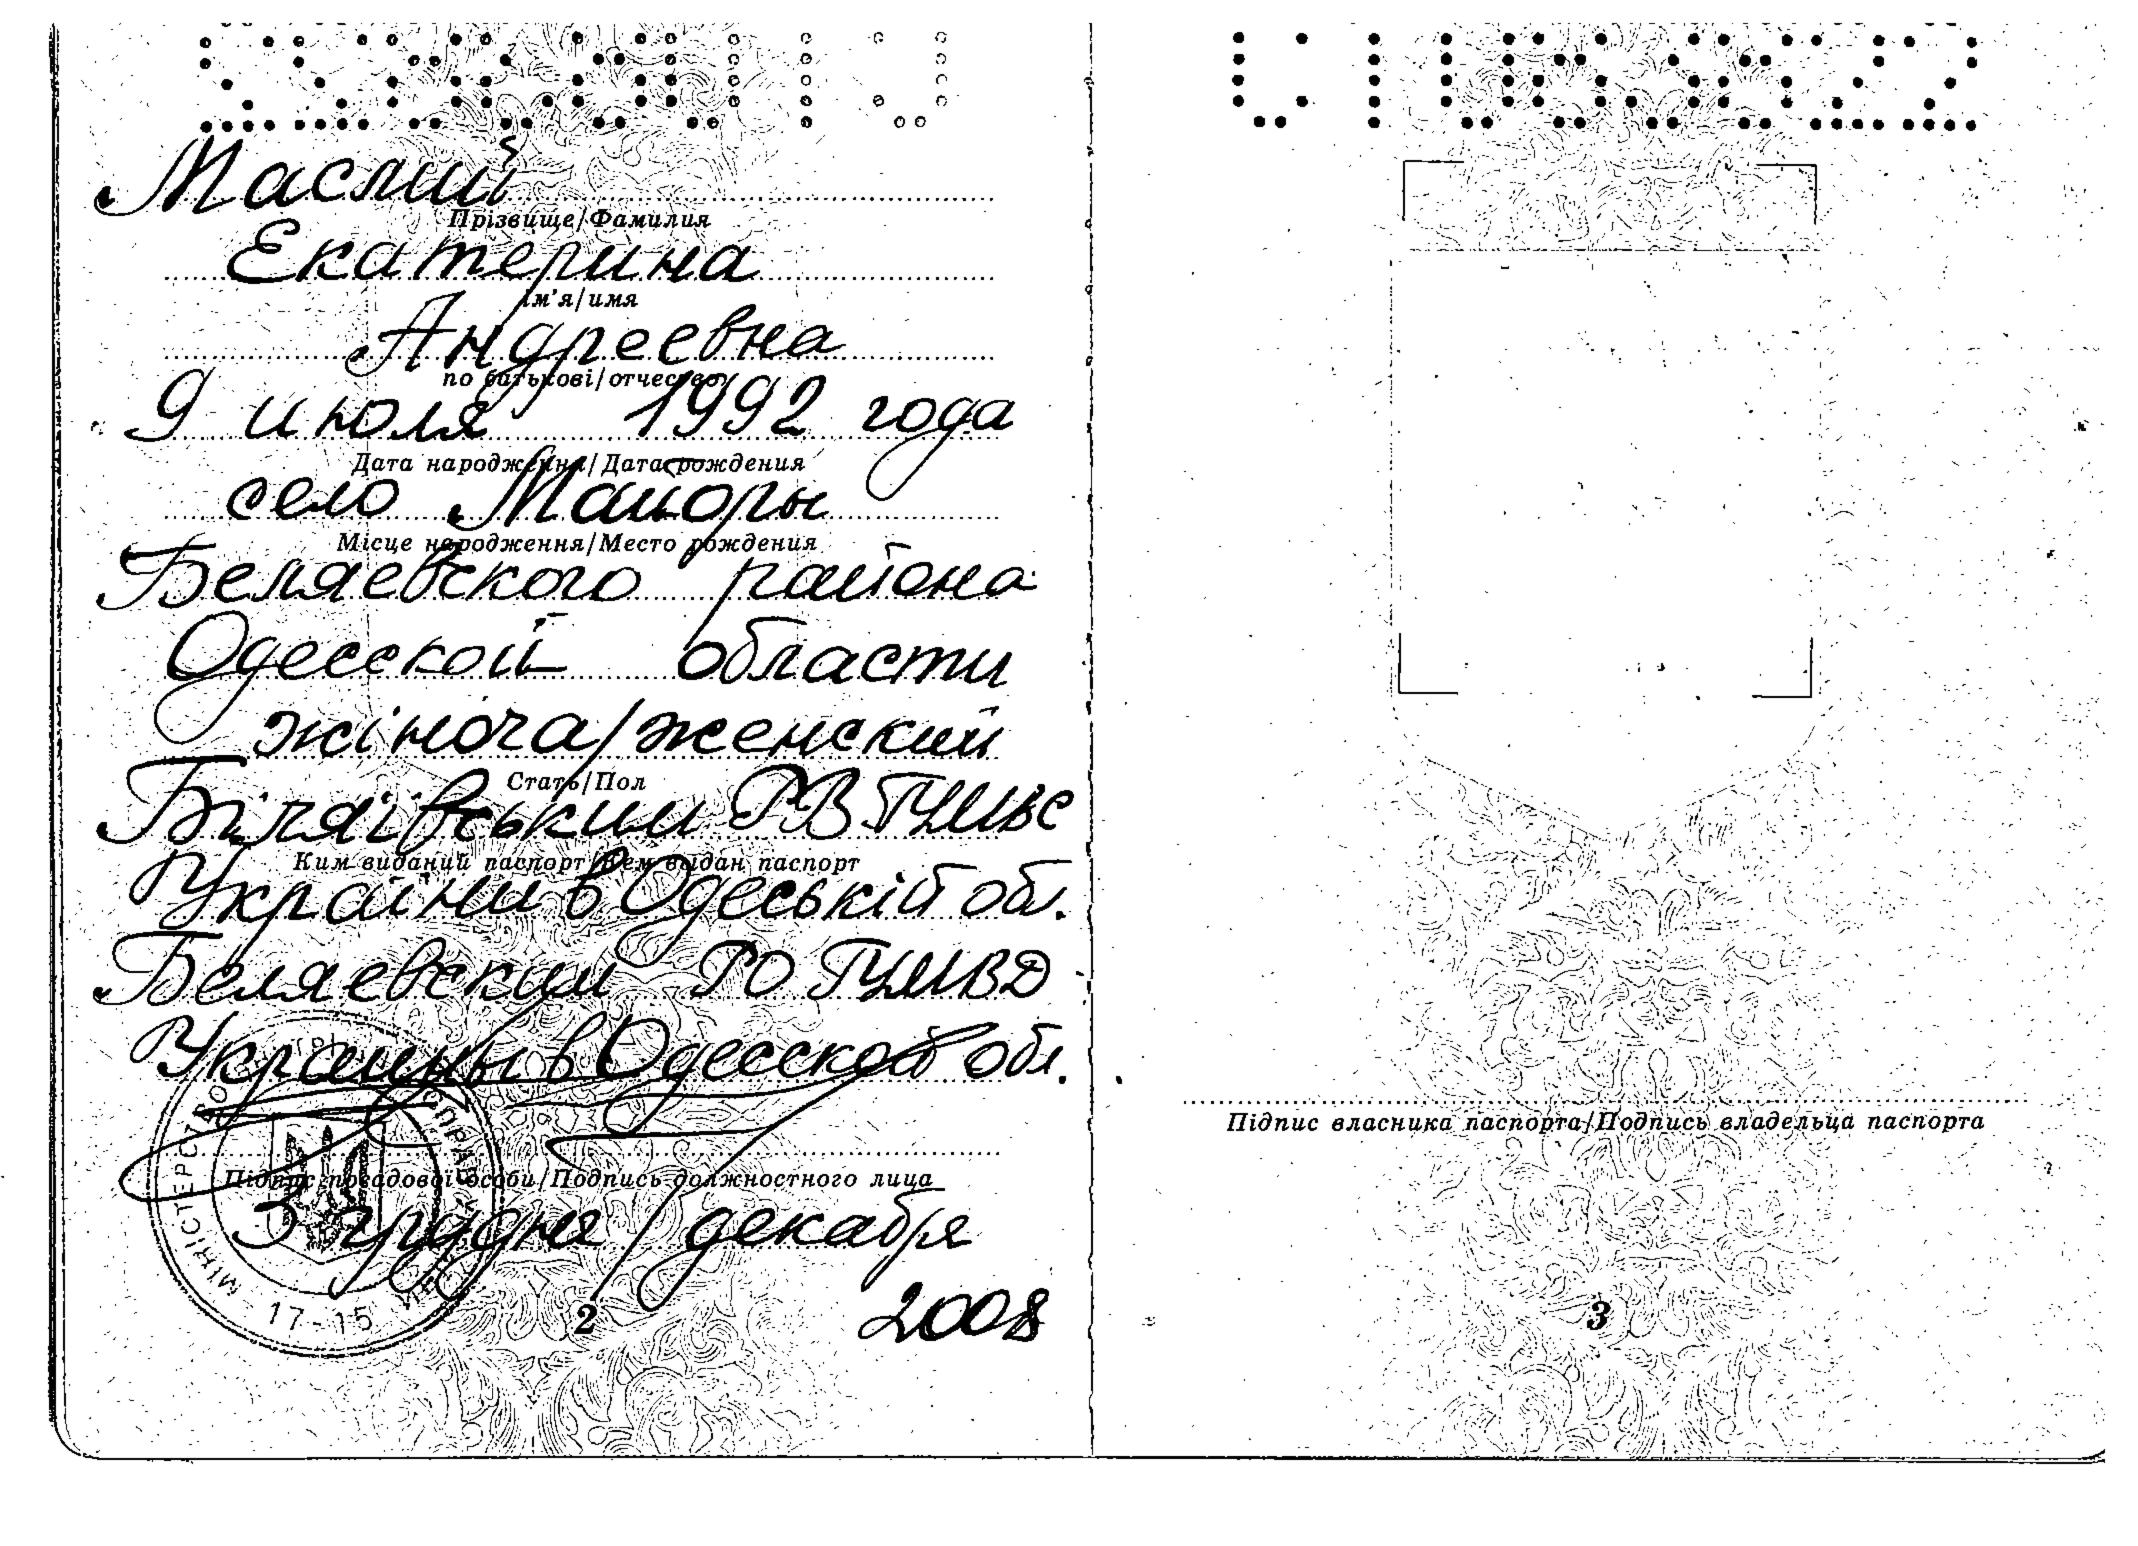 Маслий
Прізвище/Фамилия
Екатерина
ім'я/имя
Андреевна
по батькові/отчество
9 июля 1992 года
Дата народження/Дата рождения
село Майоры
Місце народження/Место рождения
Беляевского района
Одесской области
жіноча/женский
Стать/Пол
Біляївським РВ ГУМВС
Ким виданий паспорт/Кем выдан паспорт
України в Одеській обл.
Беляевским РО ГУМВД
Украины в Одесской обл.
Підпис посадової особи/Подпись должностного лица
3 грудня/декабря
2008
МІНІСТЕРСТВО
17-15
2
Підпис власника паспорта/Подпись владельца паспорта
3